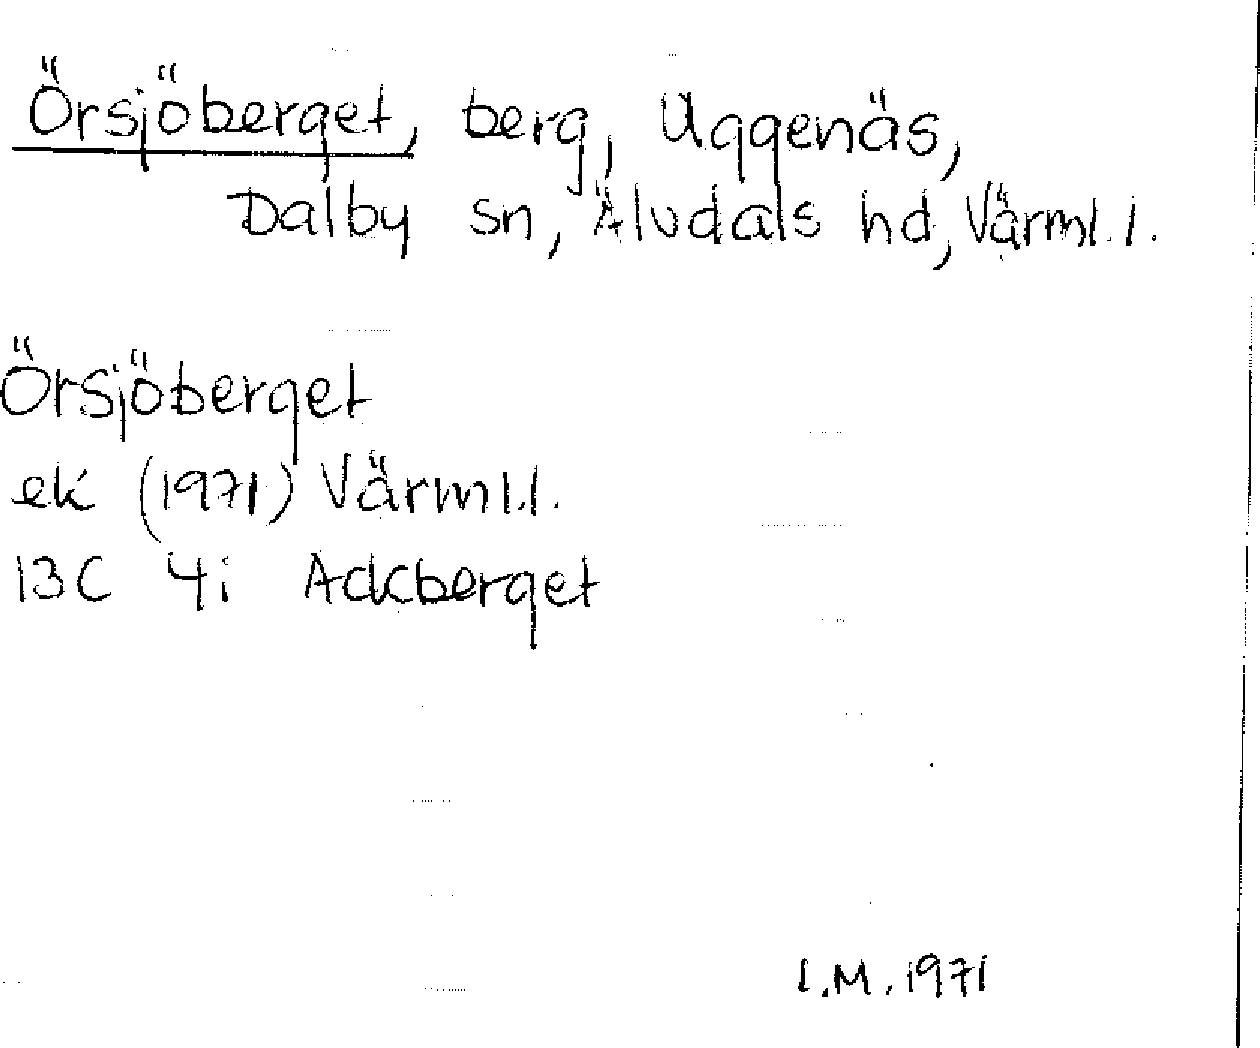 Örsjöberget, berg, Uggenäs,
Dalby sn, Älvdals hd, Värml. l.
Örsjöberget
ek (1971) Värml.l.
13C 4i Ackberget
I.M. 1971